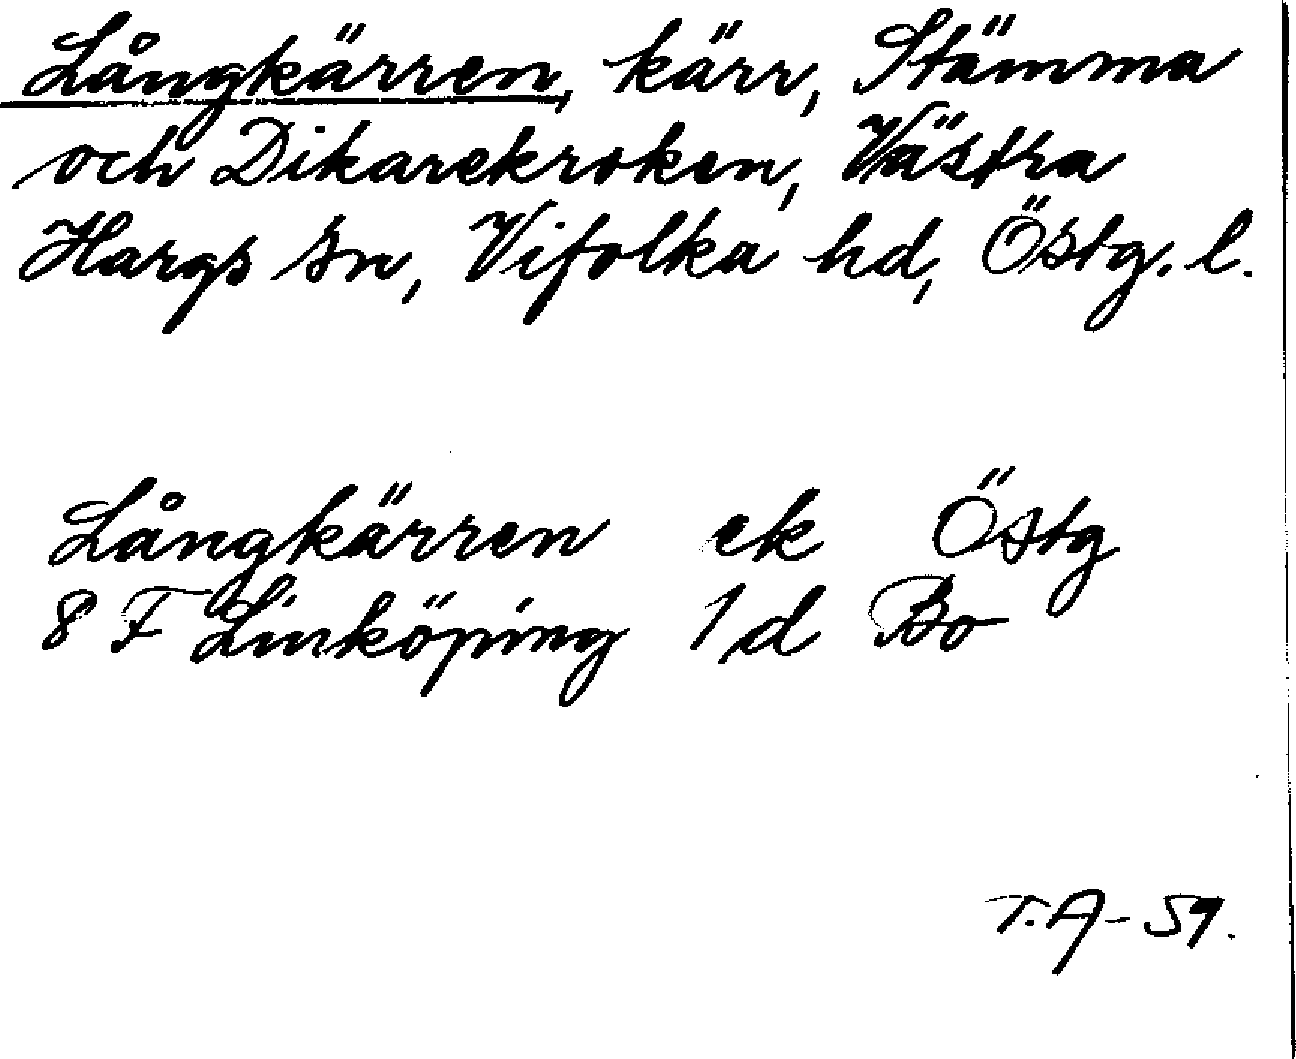 Långkärren, kärr, Stämma
och Dikarekroken, Västra
Hargs sn, Vifolka hd, Östg. l.
Långkärren ek Östg
8 F Linköping 1 d Bo
T.A-59.